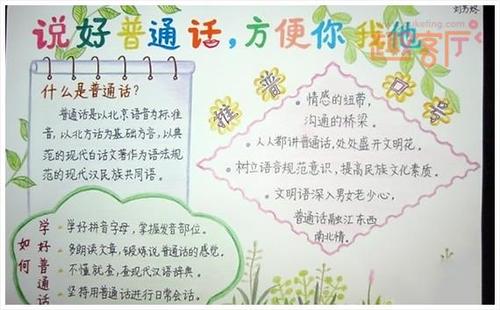 说好普通话,方便你我他
什么是普通话?
普通话是以北京语音为标准
音,以北方话为基础方言,以典
范的现代白话文著作为语法规
范的现代汉民族共同语。
推普口号
· 情感的纽带,
沟通的桥梁。
· 人人都讲普通话,处处盛开文明花。
· 树立语言规范意识,提高民族文化素质。
· 文明语深入男女老少心,
普通话融江东西
南北情。
如何
学好普通话
· 学好拼音字母,掌握发音部位。
· 多朗读文章,锻炼说普通话的感觉。
· 不懂就查,查现代汉语辞典。
· 坚持用普通话进行日常会话。